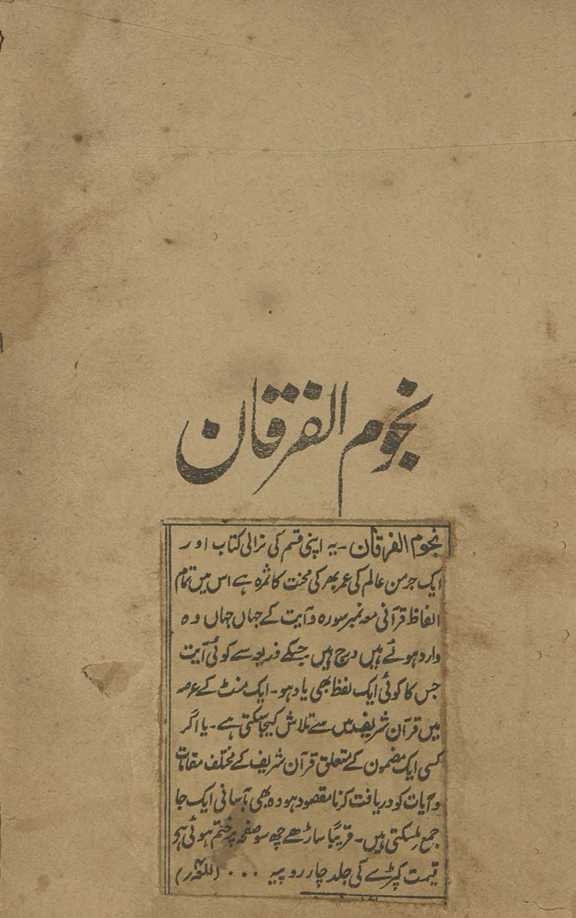 نجوم الفرقان
نجوم الفرقان - یہ اپنی قسم کی نرالی کتاب اور
ایک جرمن عالم کی عمر بھر کی محنت کا ثمرہ ہے اس میں تمام
الفاظ قرآنی معہ نمبر سورہ و آیت کے جہاں جہاں وہ
وارد ہوئے ہیں درج ہیں جسکے ذریعہ سے کوئی آیت
جس کا کوئی ایک لفظ بھی یاد ہو - ایک منٹ کے عرصہ
میں قرآن شریف میں سے تلاش کیجا سکتی ہے - یا اگر
کسی ایک مضمون کے متعلق قرآن شریف کے مختلف مقامات
و آیات کو دریافت کرنا مقصود ہو وہ بھی بآسانی ایک جا
جمع ہو سکتی ہیں - قریباً ساڑھے چھ سو صفحہ پر ختم ہوئی ہے
قیمت کپڑے کی جلد چار روپیہ . . .